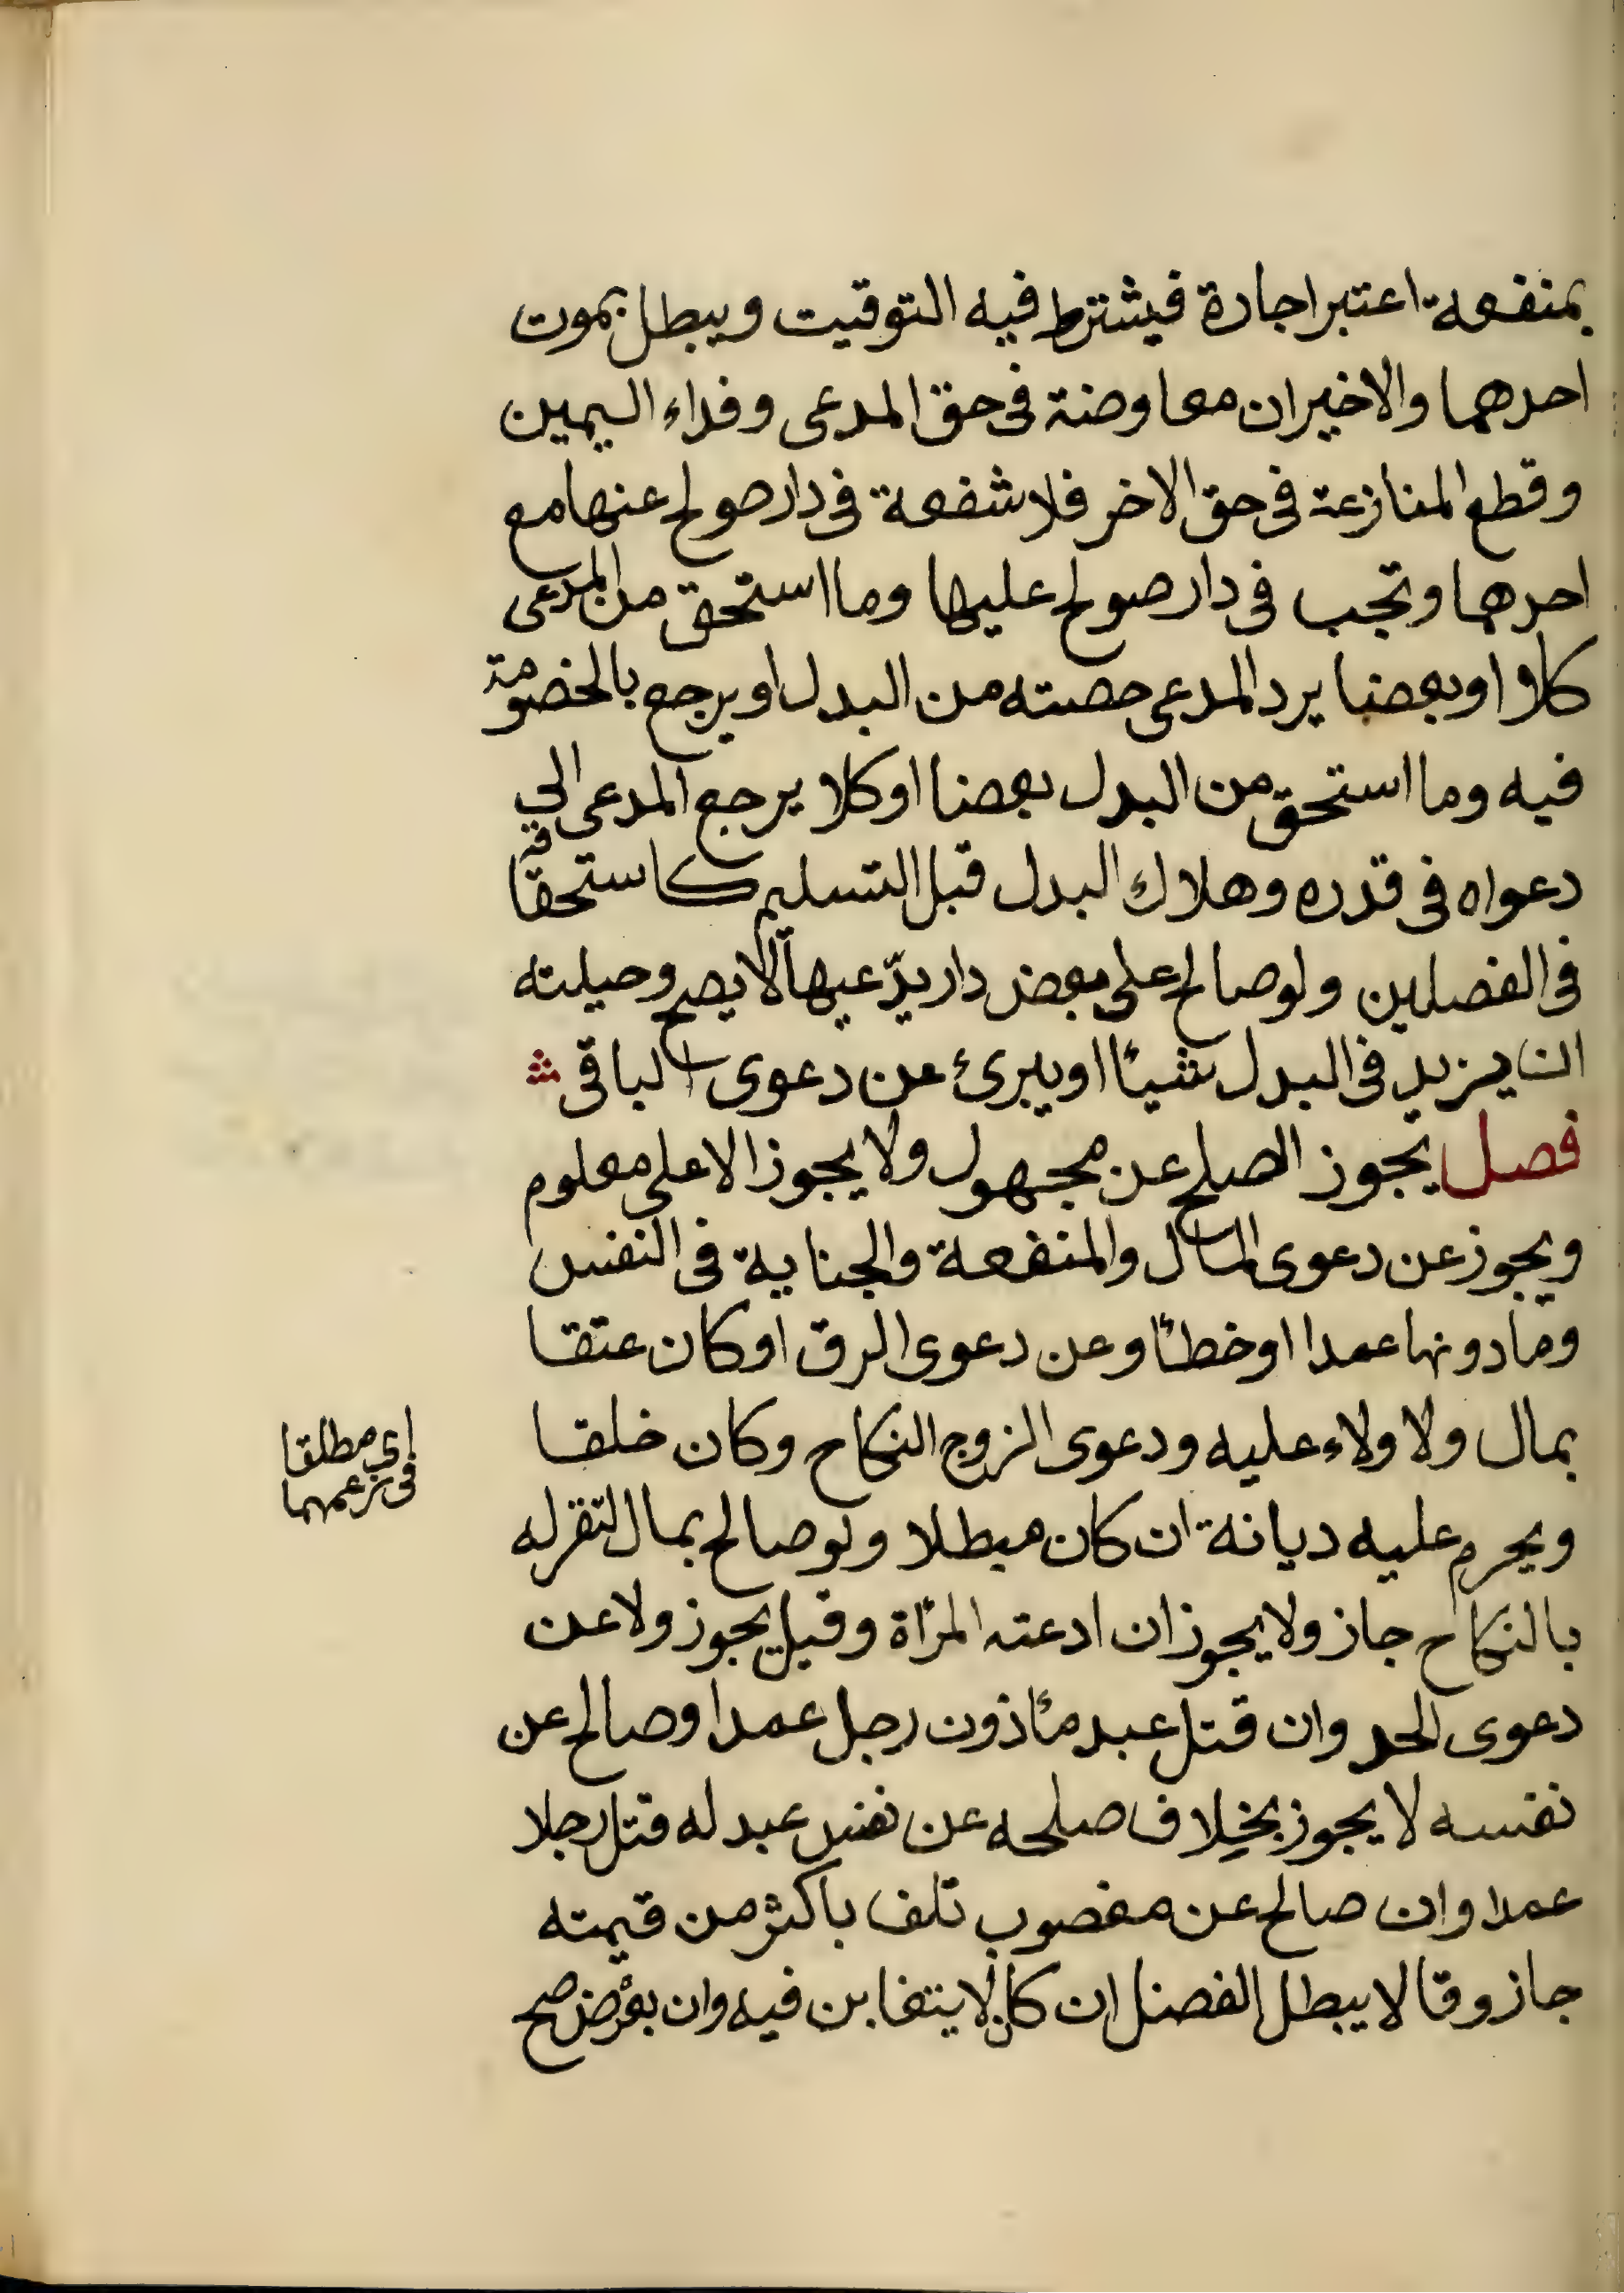 بمنفعة اعتبر اجارة فيشترط فيه التوقيت ويبطل بموت
احدهما والاخيران معاوضة فى حق المدعى وفداء اليمين
وقطع المنازعة فى حق الاخر فلا شفعة فى دار صولح عنها مع
احدهما وتجب فى دار صولح عليها وما استحق من المدعى
كلا او بعضا يرد المدعى حصته من البدل او يرجع بالخصومة
فيه وما استحق من البدل بعضا او كلا يرجع المدعى الى
دعواه فى قدره وهلاك البدل قبل التسليم كاستحقاقه
فى الفصلين ولو صالح على بعض دار يدّعيها لا يصح وحيلته
ان يزيد فى البدل شيئا او يبرئ عن دعوى الباقى
فصل يجوز الصلح عن مجهول ولا يجوز الا على معلوم
ويجوز عن دعوى المال والمنفعة والجناية فى النفس
وما دونها عمدا او خطئا وعن دعوى الرق او كان عتقا
بمال ولا ولاء عليه ودعوى الزوج النكاح وكان خلعا
ويحرم عليه ديانة ان كان مبطلا ولو صالح بمال لتقر له
بالنكاح جاز ولا يجوز ان ادعته المرأة وقيل يجوز ولا عن
دعوى الحد وان قتل عبد مأذون رجل عمدا وصالح عن
نفسه لا يجوز بخلاف صلحه عن نفس عبد له قتل رجلا
عمدا وان صالح عن مغصوب تلف باكثر من قيمته
جاز وقالا يبطل الفضل ان كان لا يتغابن فيه وان بعرض صح
اى مطلقا
فى زعمهما